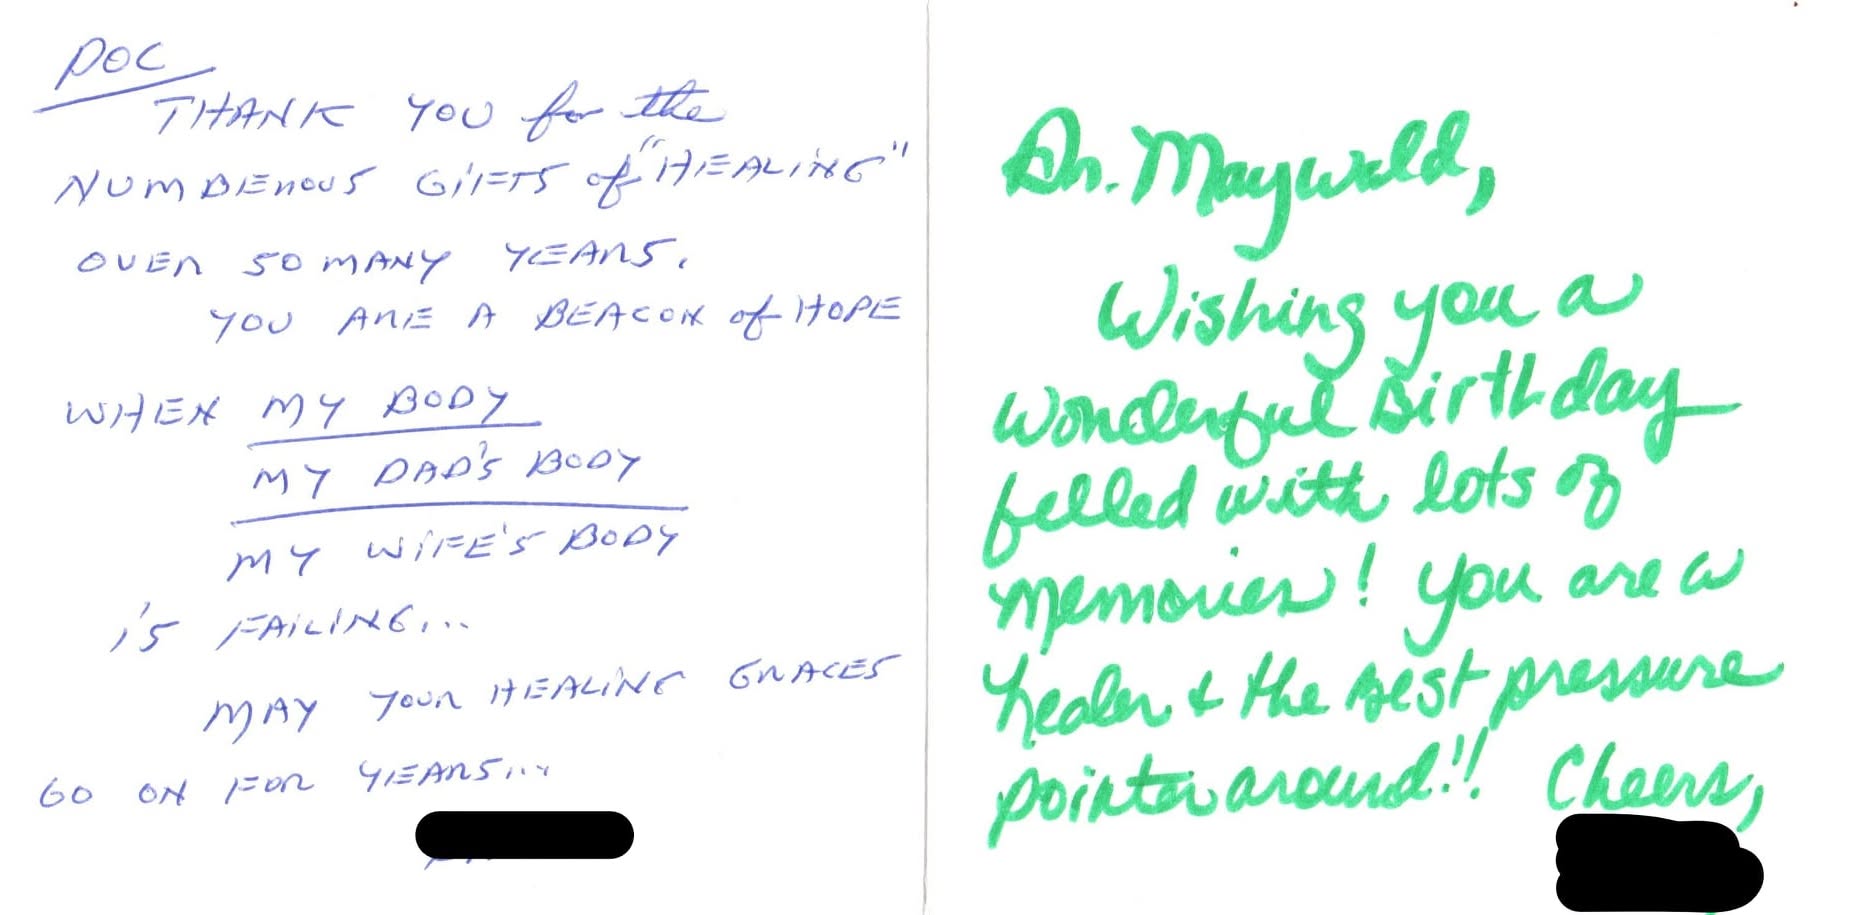 DOC
THANK YOU for the
NUMBEROUS GIFTS of "HEALING"
OVER SO MANY YEARS.
YOU ARE A BEACON of HOPE
WHEN MY BODY
MY DAD'S BODY
MY WIFE'S BODY
IS FAILING...
MAY YOUR HEALING GRACES
GO ON FOR YEARS...
Dr. Maywald,
Wishing you a
wonderful Birthday
filled with lots of
memories! You are a
healer & the best pressure
pointer around!! Cheers,